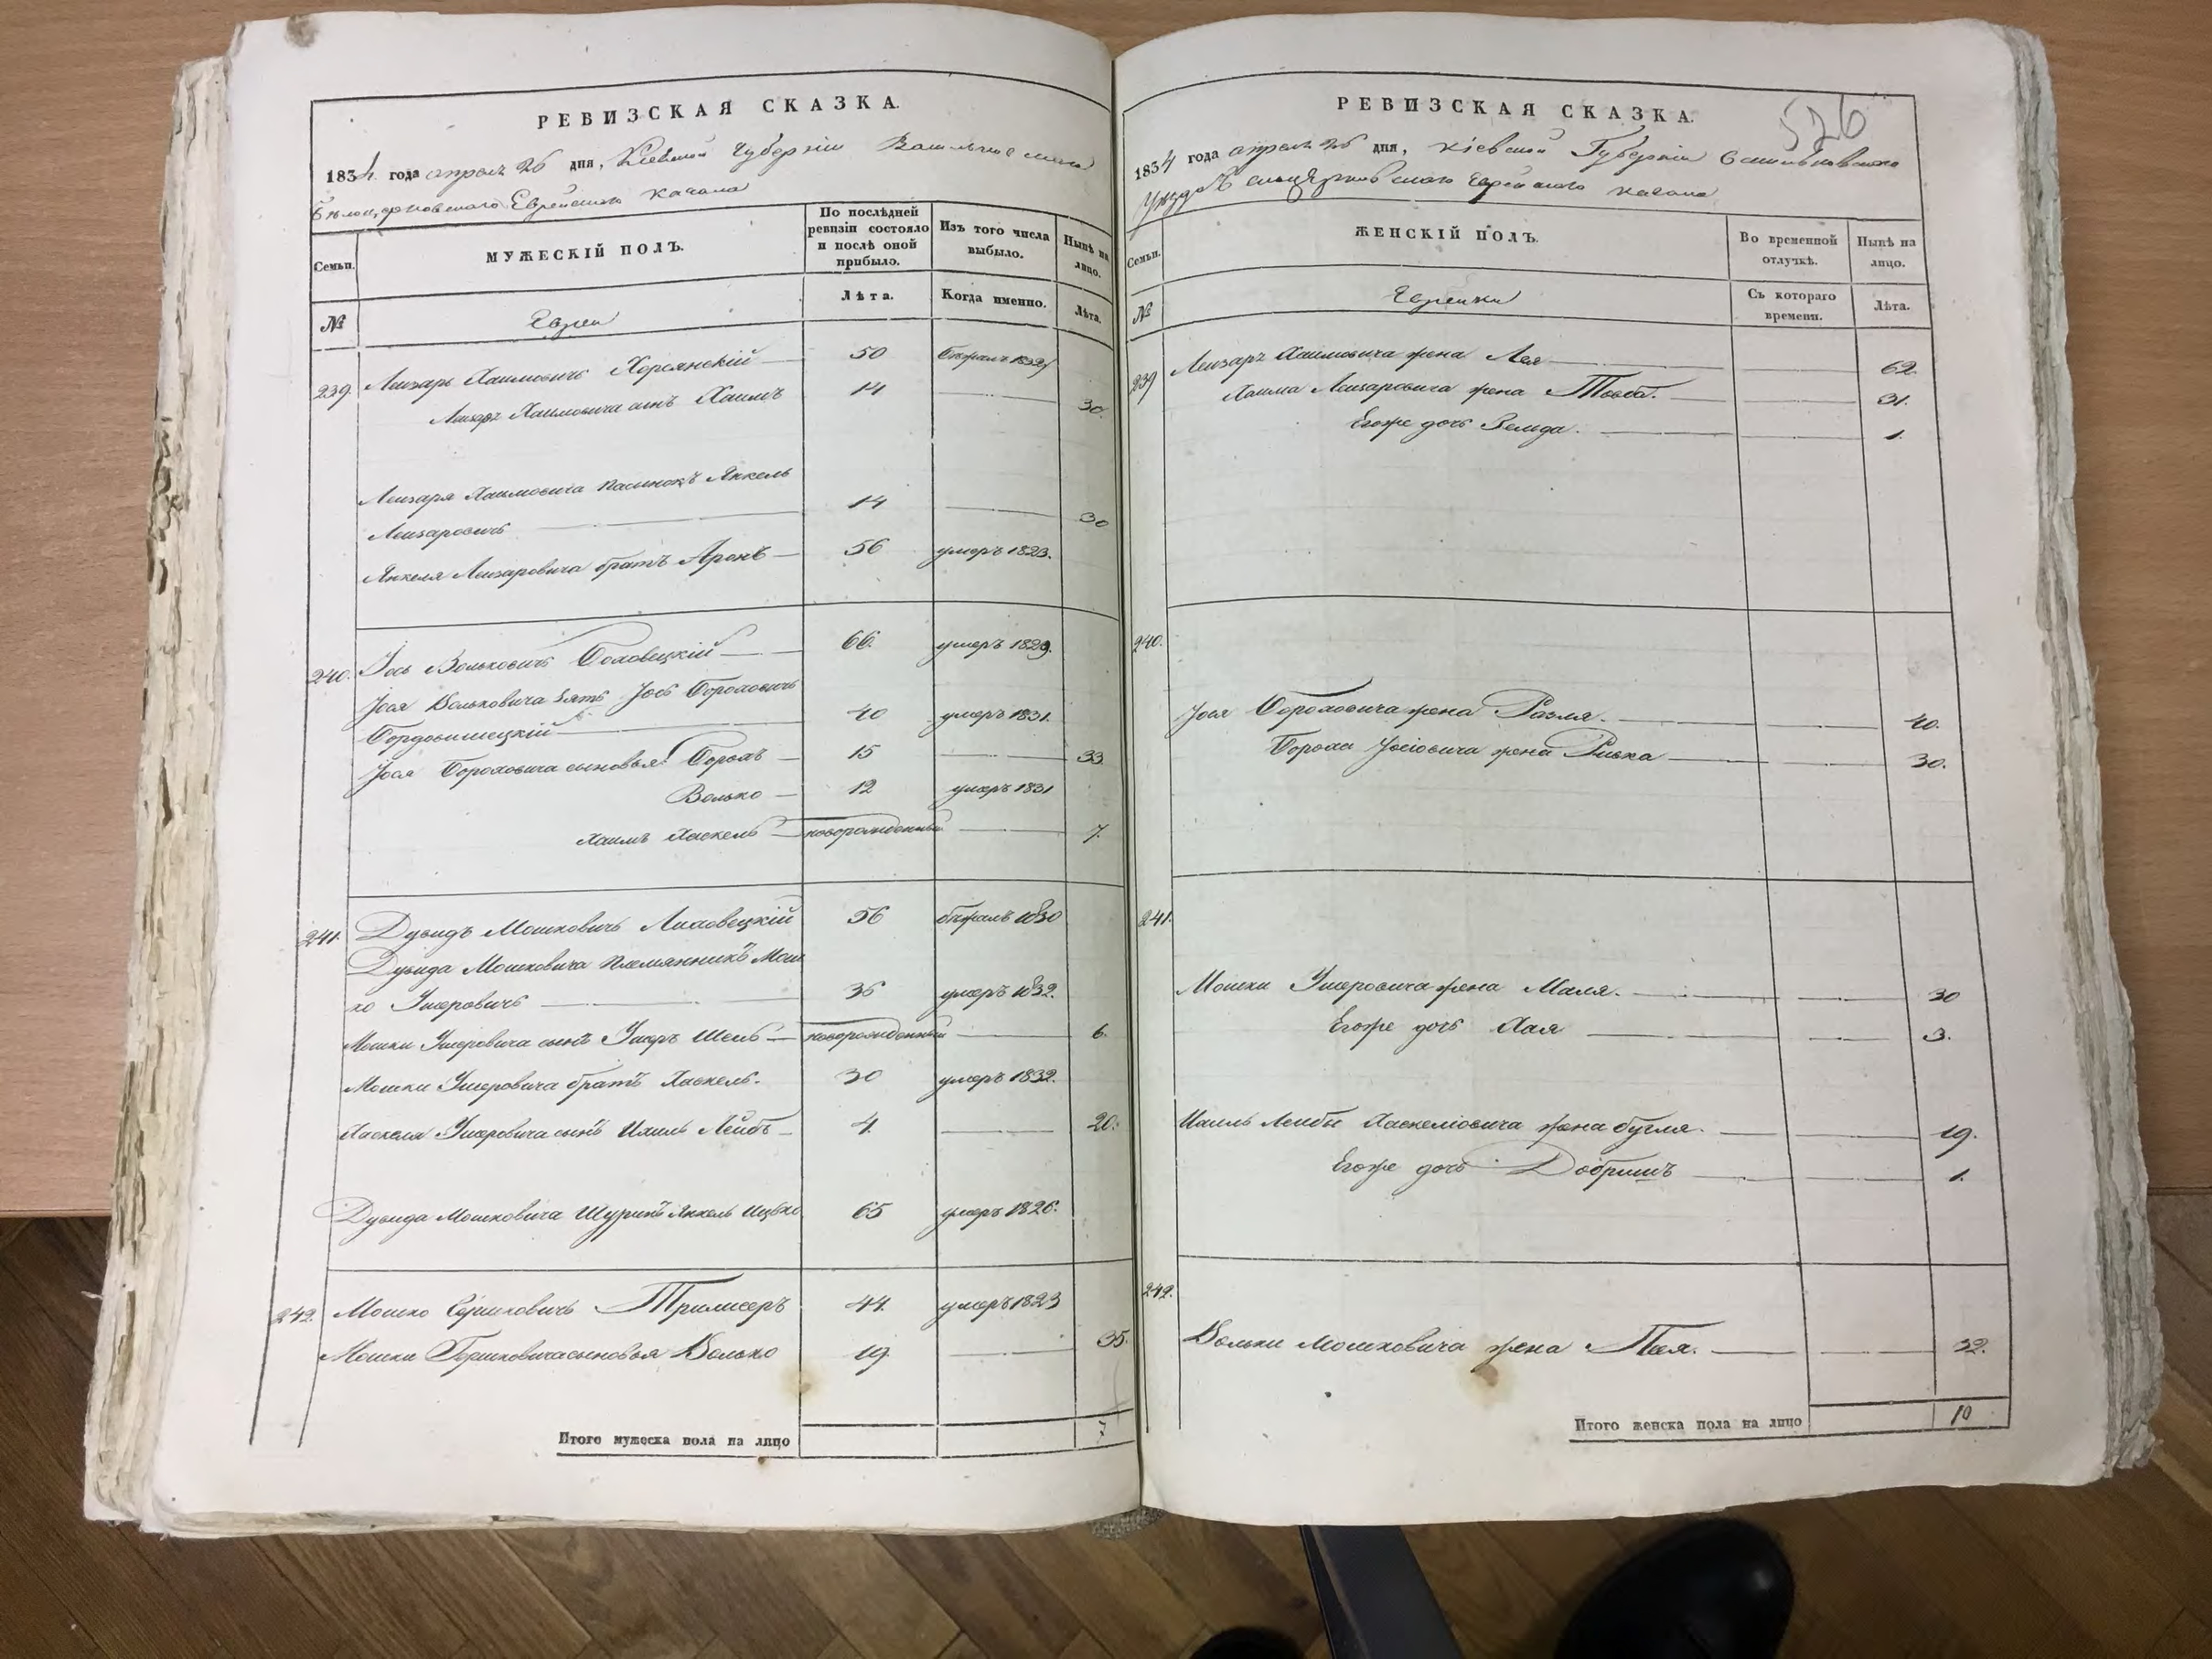 РЕВИЗСКАЯ СКАЗКА.
1834 года апреля 26 дня, Кіевской Губерніи Васильковскаго
Бѣлоцерковскаго Еврейскаго Кагала
Семьи.
МУЖЕСКІЙ ПОЛЪ.
По послѣдней ревизіи состояло и послѣ оной прибыло.
Изъ того числа выбыло.
Нынѣ на лицо.
№
Евреи
Лѣта.
Когда именно.
Лѣта.
239. Лейзаръ Хаимовичъ Хорсянскій 50 бѣжалъ 1832
Лейзаръ Хаимовича сынъ Хаимъ 14 30.
Лейзаря Хаимовича пасынокъ Янкель
Лейзаровичъ 14 30
Янкеля Лейзаровича братъ Аронъ 56 умеръ 1823.
240. Іось Вольковичъ 66. умеръ 1829.
Іося Вольковича зять Іось Бороховичъ
40 умеръ 1831.
Іося Бороховича сыновья Борохъ 15 33
Волько 12 умеръ 1831
Хаимъ Хаскель новорожденный 7.
241. Дувидъ Мошковичъ Лиховецкій 56 бѣжалъ 1830
Дувида Мошковича племянникъ Мош
ко Ушеровичъ 36 умеръ 1832.
Мошки Ушеровича сынъ Ушеръ новорожденный 6.
Мошки Ушеровича братъ Хаскель. 30 умеръ 1832.
Хаскеля Ушеровича сынъ Ихиль Лейбъ 4. 20.
Дувида Мошковича Шуринъ Янкель Ицько 65 умеръ 1826.
242. Мошко Гершковичъ Трилисеръ 44. умеръ 1823
Мошки Гершковича сыновья Волько 19. 35.
Итого мужеска пола на лицо 7
526
РЕВИЗСКАЯ СКАЗКА.
1834 года апреля 26 дня, Кіевской Губерніи Васильковскаго
Уезда Белоцерковскаго Еврейскаго Кагала
Семьи.
ЖЕНСКІЙ ПОЛЪ.
Во временной отлучкѣ.
Нынѣ на лицо.
№
Еврейки
Съ котораго времени.
Лѣта.
239 Лейзаръ Хаимовича жена Лея 62.
Хаима Лейзаровича жена Товба. 31.
Егоже дочь Зелда. 1.
240.
Іося Бороховича жена Рахля. 40.
Бороха Іосіовича жена Ривка 30.
241.
Мошки Ушеровича жена Маля. 30
Егоже дочь Хая 3.
Ихиль Лейбы Хаскеліовича жена 19.
Егоже дочь Добришъ 1.
242.
Вольки Мошковича жена 32.
Итого женска пола на лицо 10